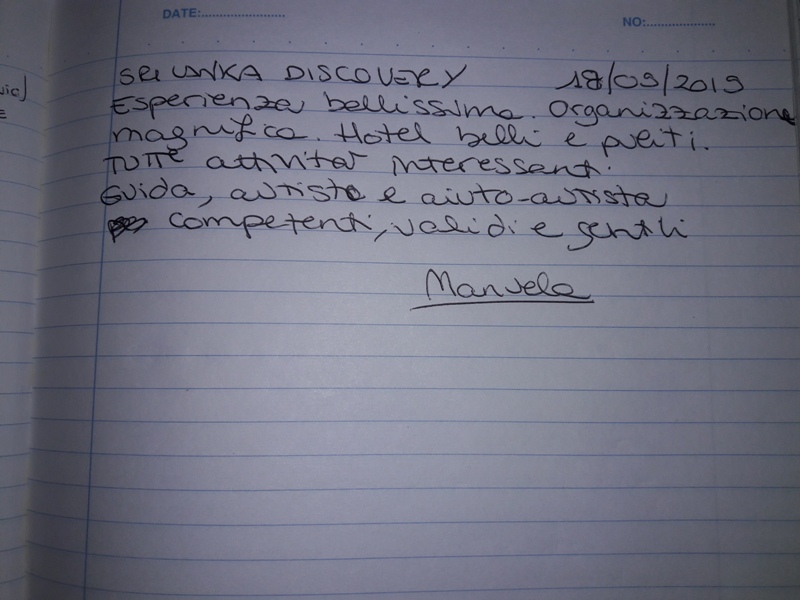 DATE:......................
NO:...................
SRI LANKA DISCOVERY 18/09/2019
Esperienza bellissima. Organizzazione
magnifica. Hotel belli e puliti.
TUTTE attività interessanti.
Guida, autista e aiuto-autista
competenti, validi e gentili
Manuela